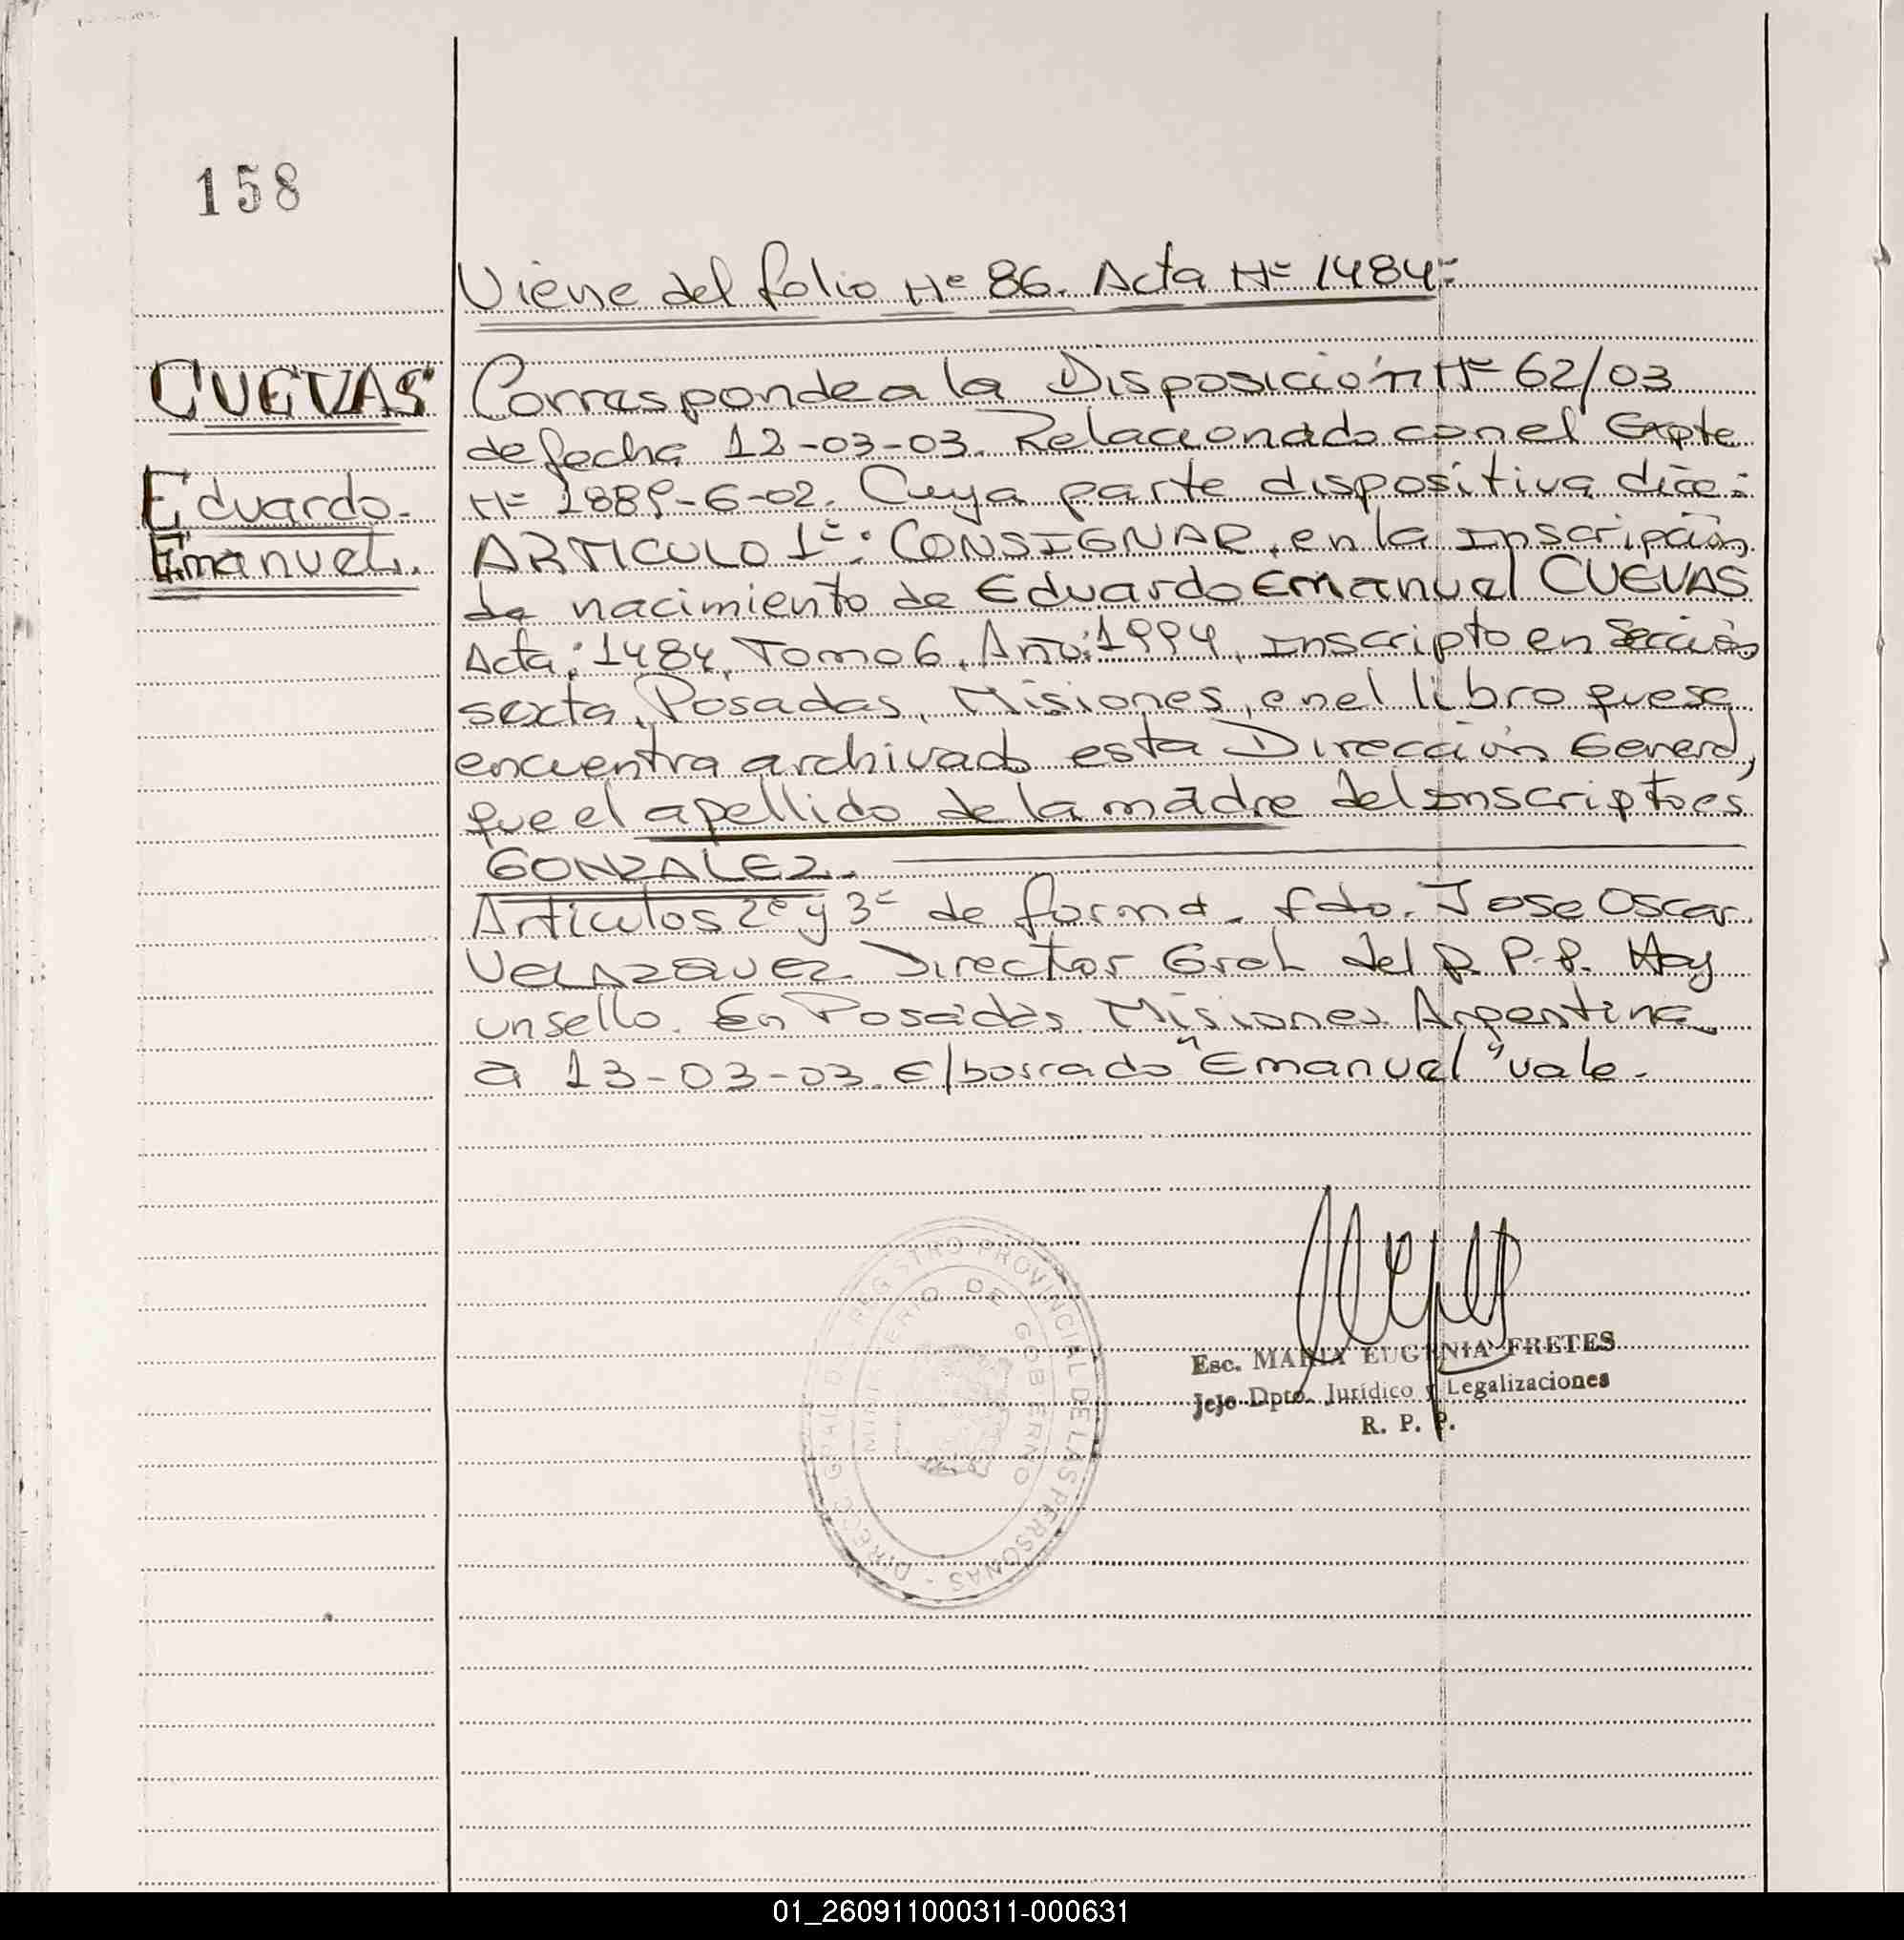 158
Viene del folio Nº 86. Acta Nº 1484=
CUEVAS
Eduardo.
Emanuel.
Corresponde a la Disposición Nº 62/03
de fecha 12-03-03. Relacionado con el Expte
Nº 1889-6-02. Cuya parte dispositiva dice:
ARTICULO 1º: CONSIGNAR, en la inscripción
de nacimiento de Eduardo Emanuel CUEVAS
Acta: 1484, Tomo 6, Año: 1994, inscripto en Sección
sexta, Posadas, Misiones, en el libro que se
encuentra archivado esta Dirección General,
que el apellido de la madre del inscripto es
GONZALEZ.
Artículos 2º y 3º de forma. fdo. Jose Oscar
VELAZQUEZ Director Gral del R. P. P. Hay
un sello. En Posadas Misiones Argentina
a 13-03-03. E/borrado "Emanuel" vale.
DIREC. GRAL. DE REGISTRO PROVINCIAL DE LAS PERSONAS -
MINISTERIO DE GOBIERNO
Esc. MARIA EUGENIA FRETES
Jefe Dpto. Jurídico y Legalizaciones
R. P. P.
01_260911000311-000631